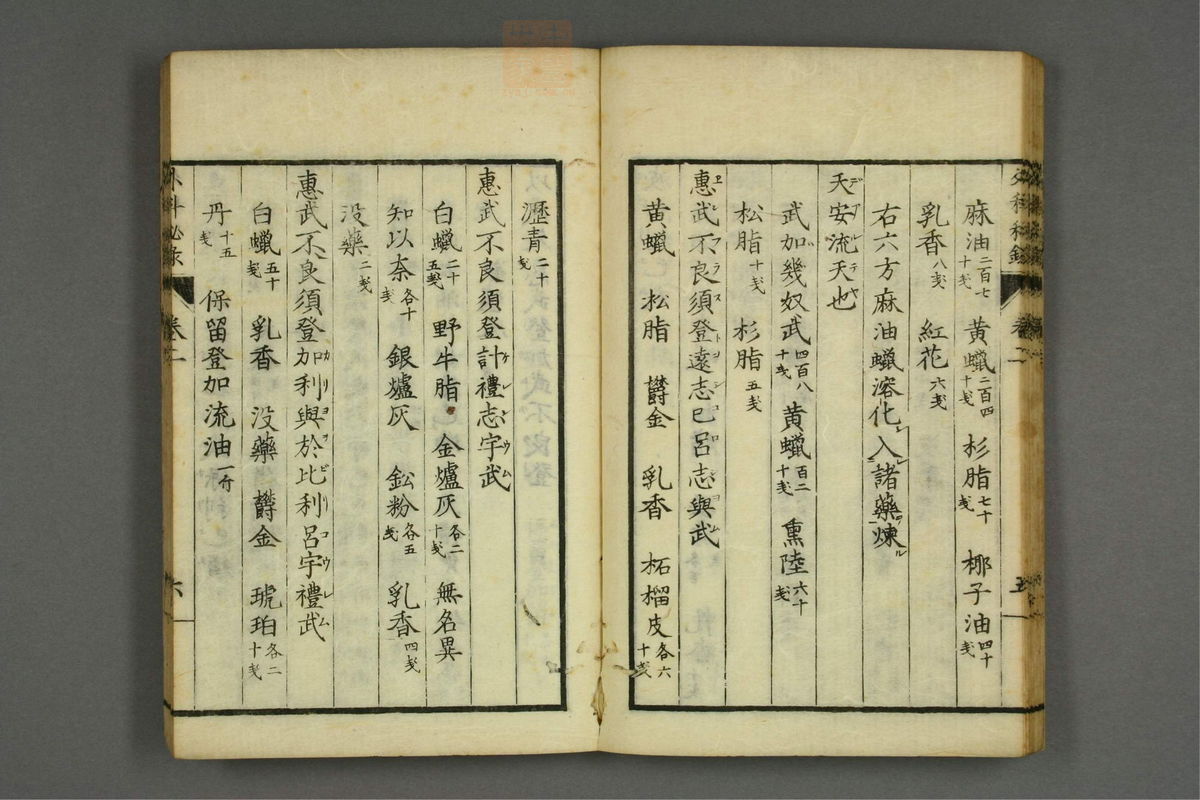 麻油二百七十戔 黄蠟二百四十戔 杉脂七十戔 椰子油四十戔
乳香八戔 紅花六戔
右六方麻油蠟溶化入諸藥煉
天安流天也
武加幾奴武四百八十戔 黄蠟百二十戔 熏陸六十戔
松脂十戔 杉脂五戔
惠武不良須登遠志巳呂志與武
黄蠟 松脂 欝金 乳香 柘榴皮各六十戔
瀝青二十戔
惠武不良須登計禮志宇武
白蠟二十五戔 野牛脂 金爐灰各二十戔 無名異
知以奈各十戔 銀爐灰 鈆粉各五戔 乳香四戔
没藥二戔
惠武不良須登加利與於比利呂宇禮武
白蠟五十戔 乳香 没藥 欝金 琥珀各二十戔
丹十五戔 保留登加流油一斤
卷二 六